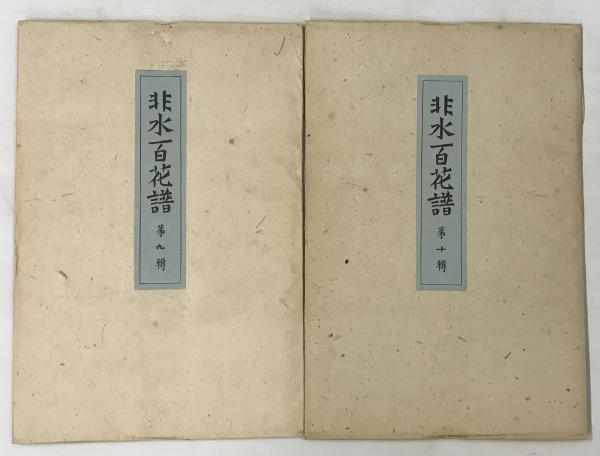 非水百花譜
第九輯
非水百花譜
第十輯